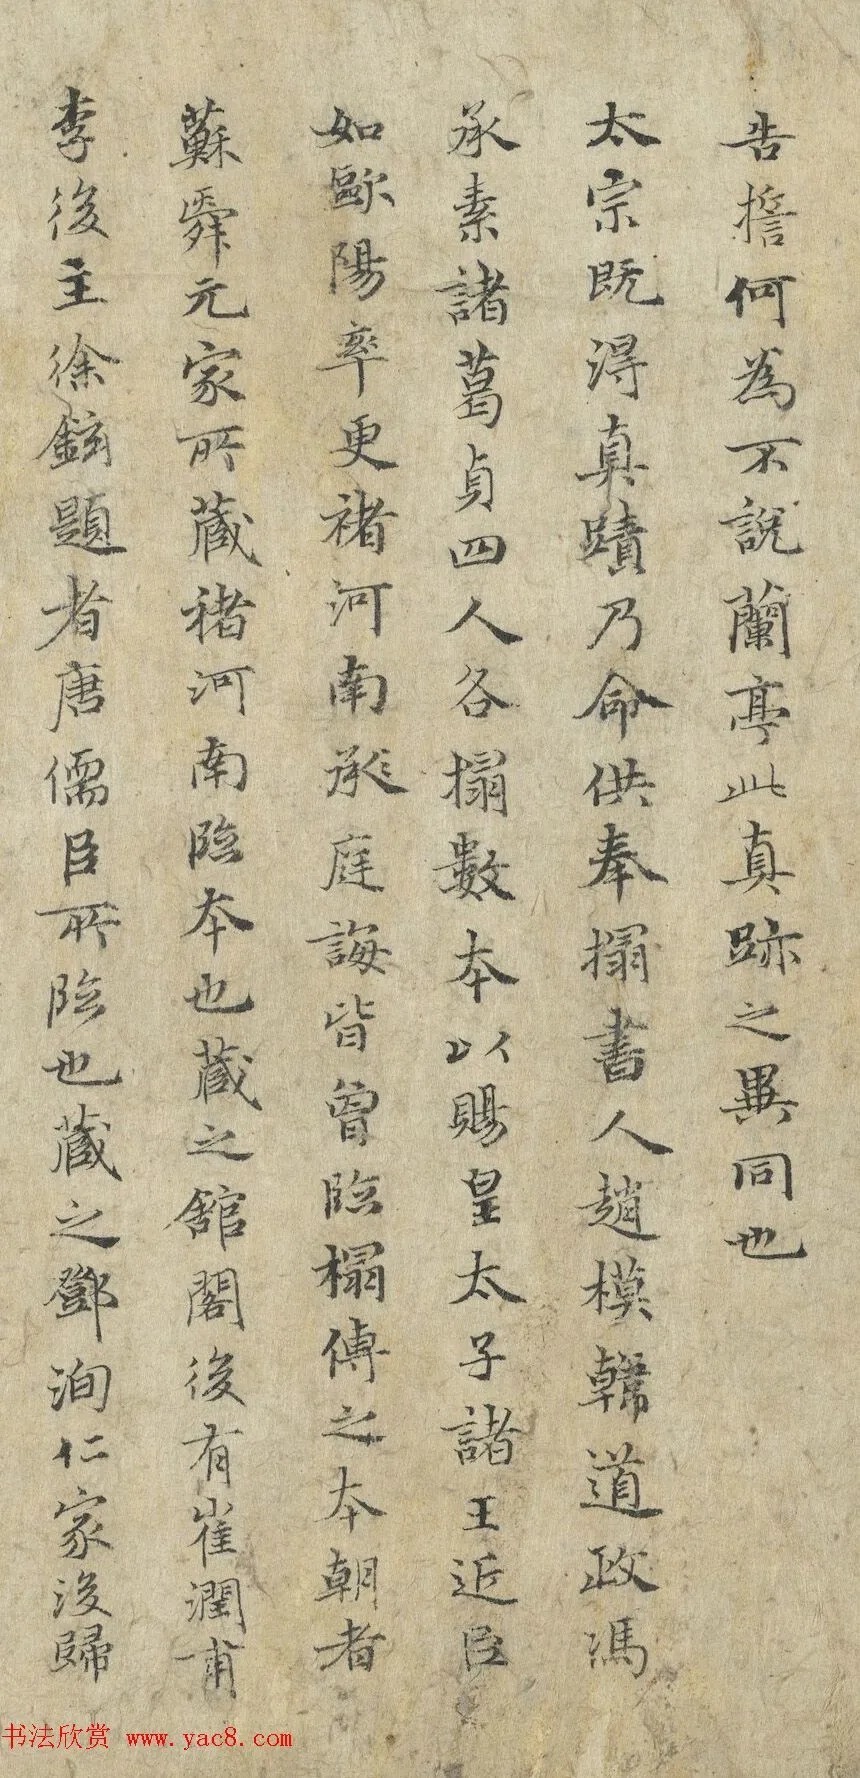 告擔何為不說蘭亭此真跡之異同也
太宗既得真蹟乃命供奉搨書人趙模韓道政馮
承素諸葛貞四人各搨數本以賜皇太子諸王近臣
如歐陽率更褚河南承庭誨皆曾臨榻傳之本朝者
蘇舜元家所蔵褚河南臨本也蔵之舘閣後有崔潤甫
李後主徐鉉題者唐儒臣所臨也蔵之鄧洵仁家後歸
书法欣赏 www.yac8.com